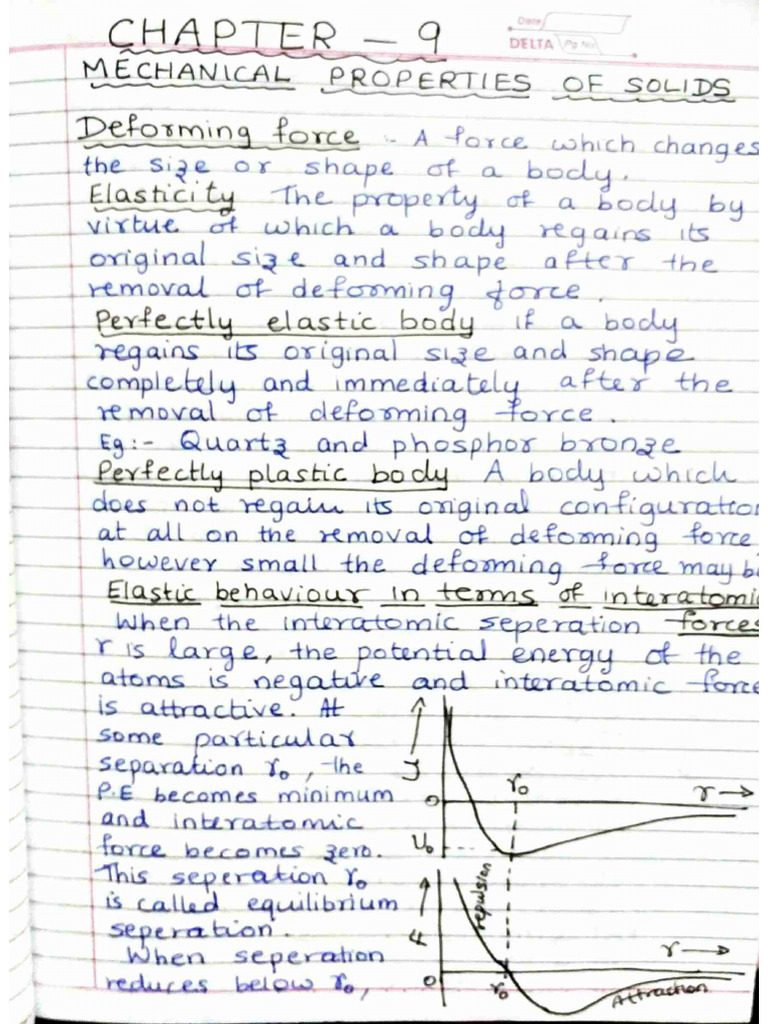 CHAPTER - 9
Date
DELTA Pg No
MECHANICAL PROPERTIES OF SOLIDS
Deforming force :- A force which changes
the size or shape of a body.
Elasticity The property of a body by
virtue of which a body regains its
original size and shape after the
removal of deforming force.
Perfectly elastic body if a body
regains its original size and shape
completely and immediately after the
removal of deforming force.
Eg:- Quartz and phosphor bronze
Perfectly plastic body A body which
does not regain its original configuration
at all on the removal of deforming force
however small the deforming force may be
Elastic behaviour in terms of interatomic
When the interatomic seperation forces
r is large, the potential energy of the
atoms is negative and interatomic force
is attractive. At
some particular
separation r₀, the
P.E becomes minimum
and interatomic
force becomes zero.
This seperation r₀
is called equilibrium
seperation.
When seperation
reduces below r₀,
r₀
r →
0
U₀
repulsion
F
r →
0
r₀
Attraction